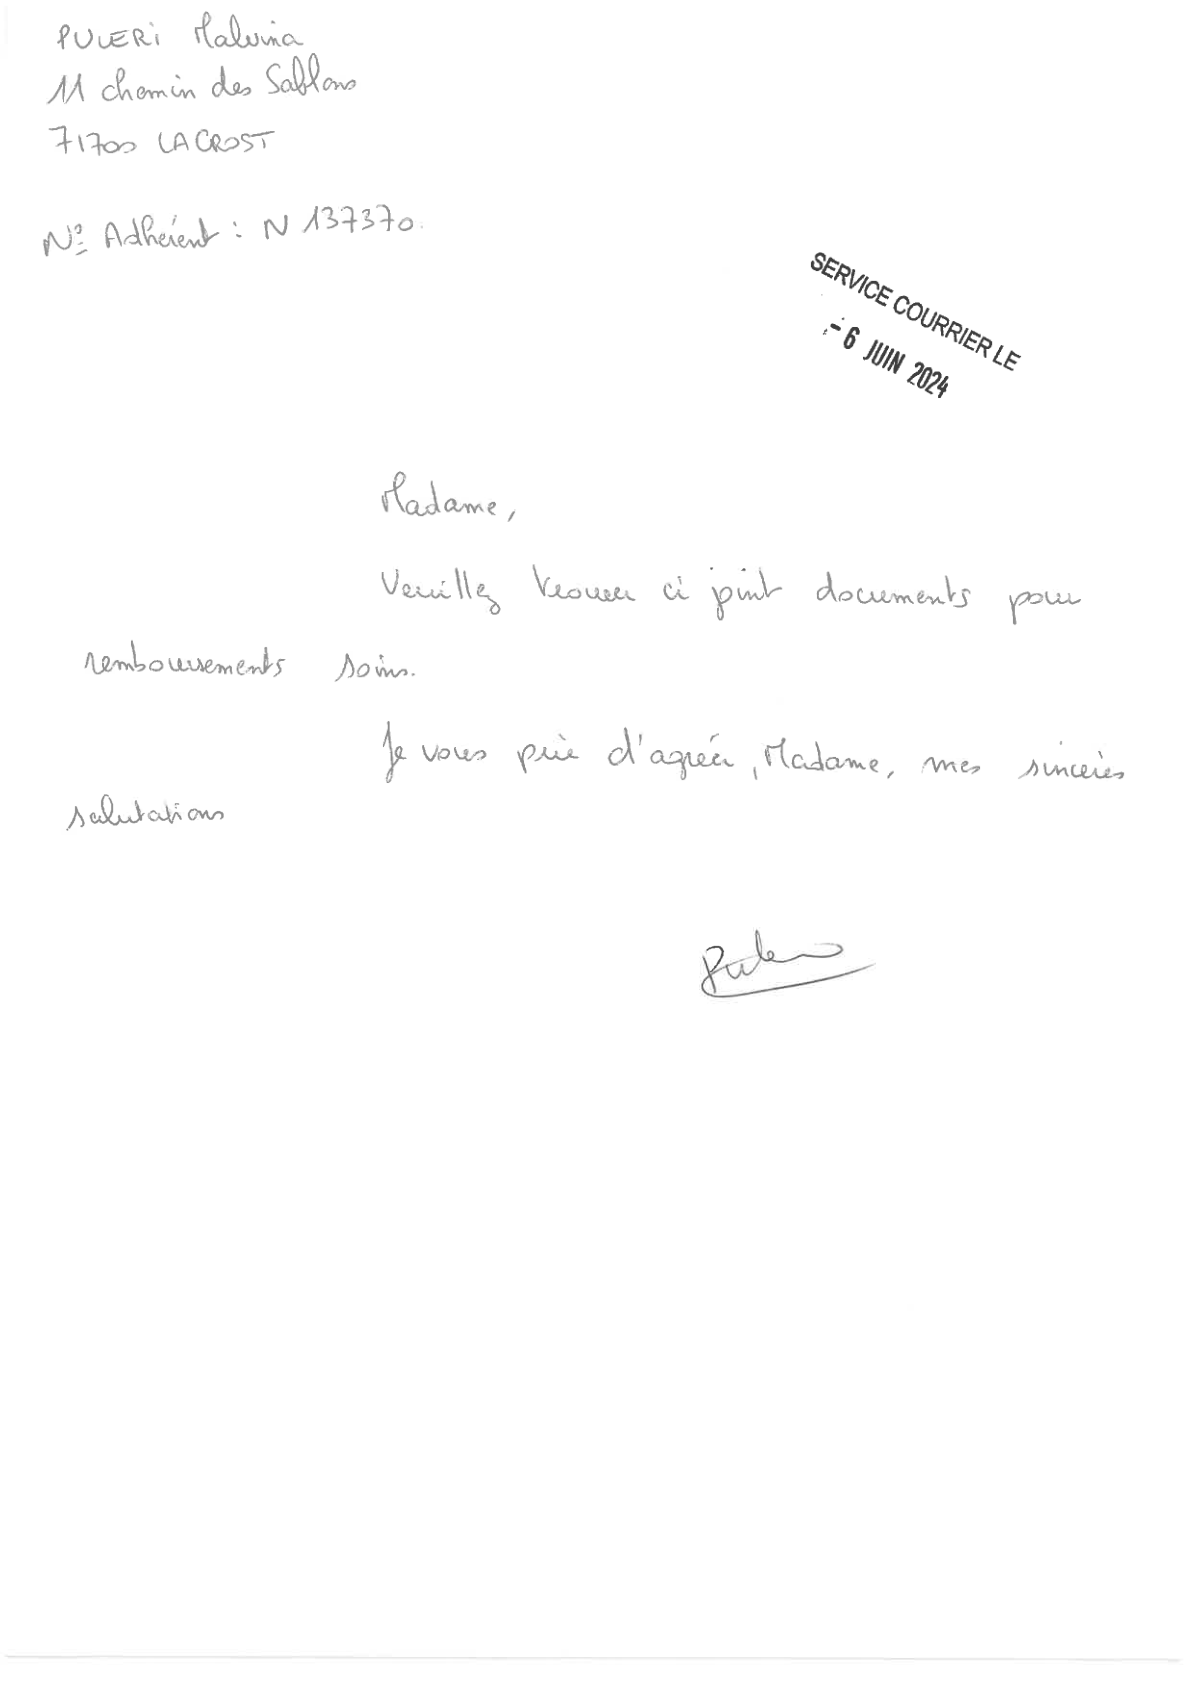 PULERI Malvina
11 chemin des Sablons
71700 LACROST
N° Adhérent : N 137370.
SERVICE COURRIER LE
- 6 JUIN 2024
Madame,
Veuillez trouver ci joint documents pour
remboursements soins.
Je vous prie d'agréer, Madame, mes sincères
salutations
Puleri